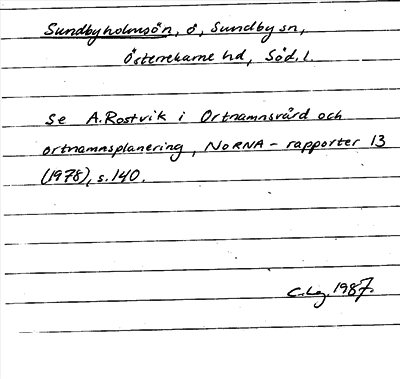 Sundbyholmsön, ö, Sundby sn,
Österrekarne hd, Söd. l.
Se A. Rostvik i Ortnamnsvård och
ortnamnsplanering, NORNA-rapporter 13
(1978), s. 140.
1987.